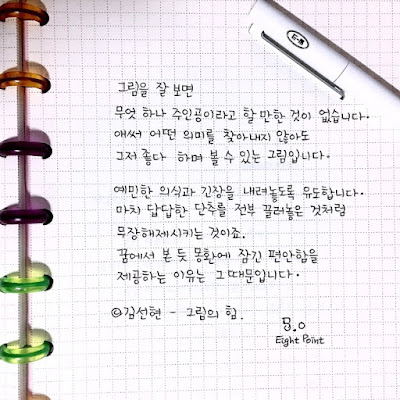 그림을 잘 보면
무엇 하나 주인공이라고 할 만한 것이 없습니다.
애써 어떤 의미를 찾아내지 않아도
그저 좋다 하며 볼 수 있는 그림입니다.
예민한 의식과 긴장을 내려놓도록 유도합니다.
마치 답답한 단추를 전부 끌러놓은 것처럼
무장해제시키는 것이죠.
꿈에서 본 듯 몽환에 잠긴 편안함을
제공하는 이유는 그 때문입니다.
©김선현 - 그림의 힘.
8.0
Eight Point